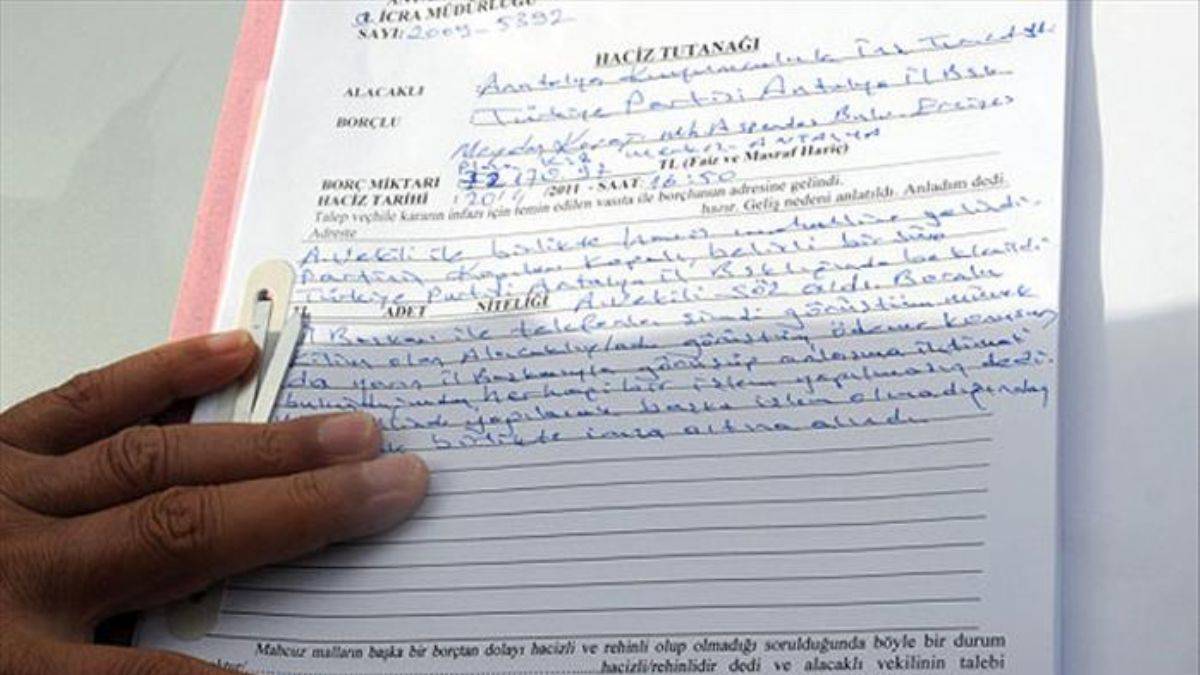 İCRA MÜDÜRLÜĞÜ
SAYI: 2009-5392
HACİZ TUTANAĞI
ALACAKLI : Antalya Kuyumculuk
BORÇLU : Türkiye Partisi Antalya İl Bşk.
ANTALYA
BORÇ MİKTARI TL (Faiz ve Masraf Hariç)
HACİZ TARİHİ /2011 - SAAT: 16:50
Talep veçhile kararın infazı için temin edilen vasıta ile borçlunun adresine gelindi.
Adreste hazır. Geliş nedeni anlatıldı. Anladım dedi.
A. Vekili ile birlikte haciz mahalline gelindi.
Partinin kapıları kapalı, belirli bir süre
Türkiye Partisi Antalya İl Bşklığında beklenildi.
ADET NİTELİĞİ A. Vekili söz aldı. Borçlu
Başkanı ile telefonla şimdi görüştüm
olan Alacaklıyla görüştüm ödeme konusun
da yarın il Başkanıyla görüşüp anlaşma ihtimali
bulunduğundan, herhangi bir işlem yapılmasın dedi.
yapılacak başka işlem olmadığından
birlikte imza altına alındı.
Mahcuz malların başka bir borçtan dolayı hacizli ve rehinli olup olmadığı sorulduğunda böyle bir durum
hacizli/rehinlidir dedi ve alacaklı vekilinin talebi